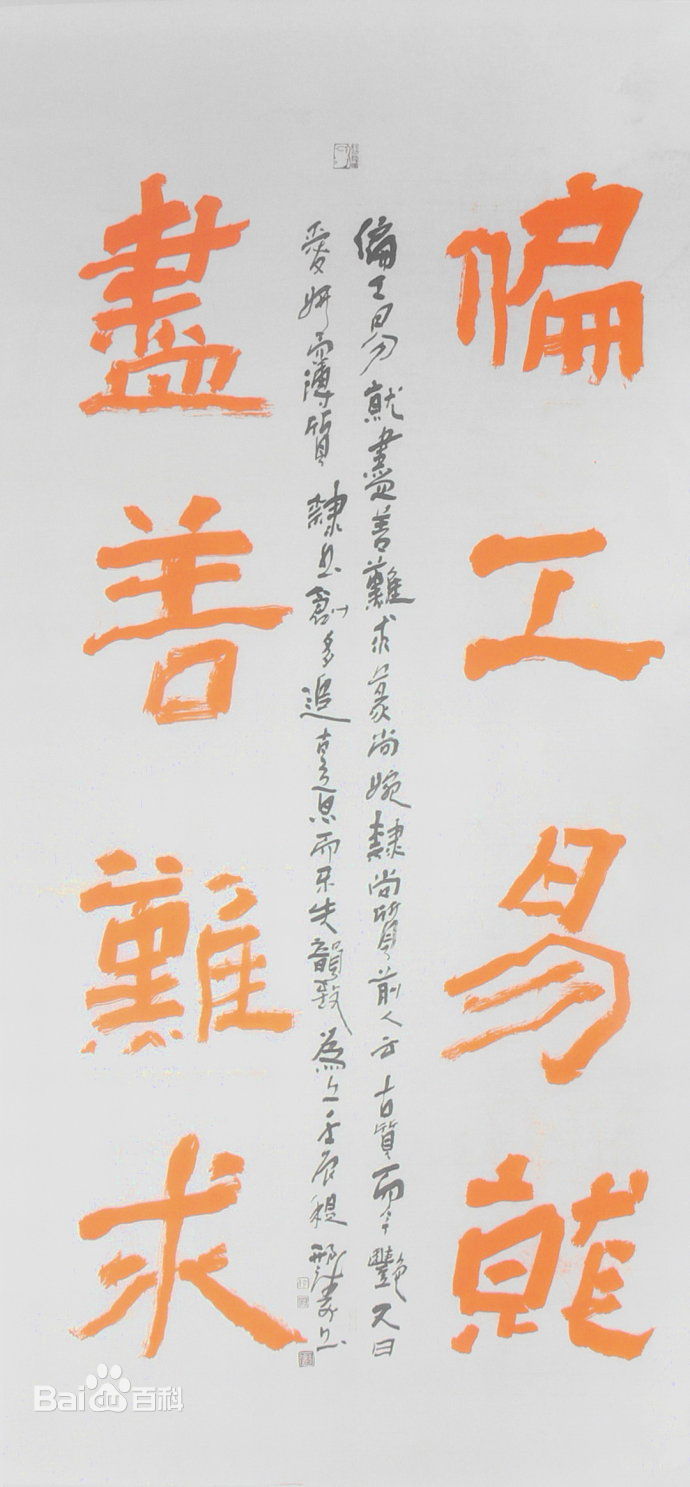 偏工易就
偏工易就盡善難求篆尚婉隸尚質前人云古質而今艷又曰
愛妍而薄質隸书創多追古而不失韻致為上壬辰书
盡善難求
Bai百科